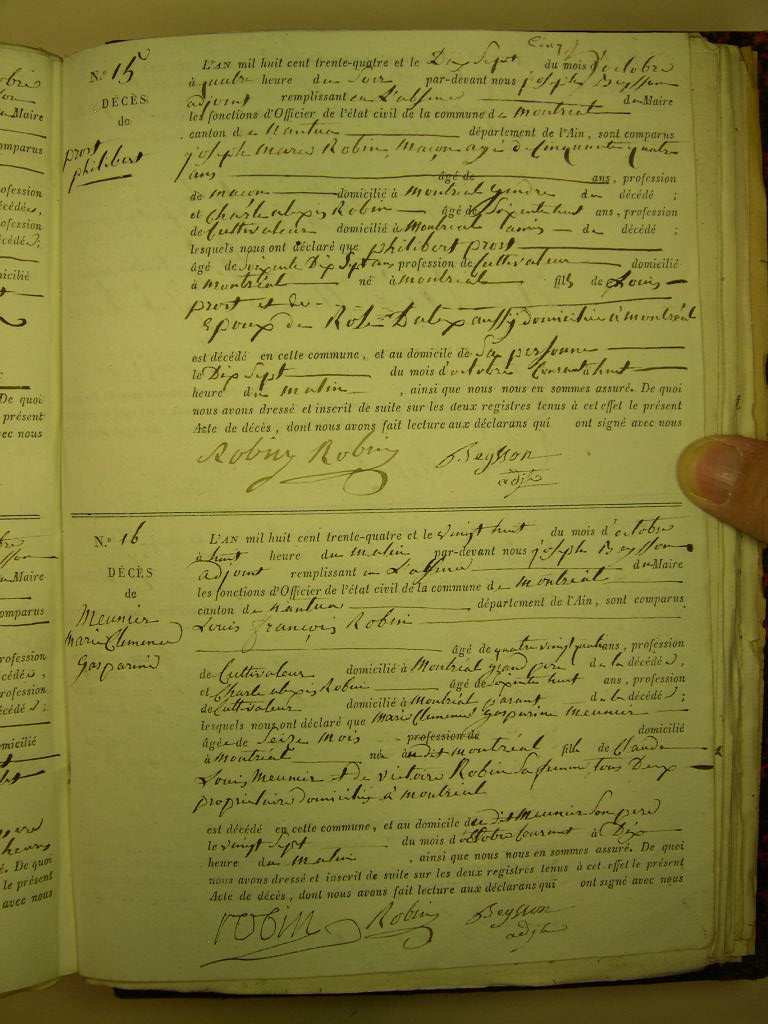 N.° 15
DÉCÈS
de
prost
philibert
L'AN mil huit cent trente-quatre et le Dix Sept du mois d'octobre
à quatre heure du Soir par-devant nous joseph Beysson
adjoint remplissant en L'absence du Maire
les fonctions d'Officier de l'état civil de la commune de montréal
canton de nantua département de l'Ain, sont comparus
joseph Marie Robin, Maçon agé de Cinquante quatre
ans âgé de ans, profession
de maçon domicilié à Montréal gendre du décédé ;
et Charle alexis Robin âgé de Soixente huit ans, profession
de Cultivateur domicilié à Montréal amis du décédé ;
lesquels nous ont déclaré que philibert prost
âgé de soixente Dix Sept ans profession de Cultivateur domicilié
à montréal né à montréal fils de Louis
prost et de
Epoux de aussy domiciliée à montréal
est décédé en cette commune, et au domicile de Sa personne
le Dix Sept du mois d'octobre Courant à huit
heure du matin , ainsi que nous nous en sommes assuré. De quoi
nous avons dressé et inscrit de suite sur les deux registres tenus à cet effet le présent
Acte de décès, dont nous avons fait lecture aux déclarans qui ont signé avec nous
Robin Robin Beysson
adjt
N.° 16
DÉCÈS
de
Meunier
Marie Clemence
Gasparine
L'AN mil huit cent trente-quatre et le vingt huit du mois d'octobre
à huit heure du matin par-devant nous joseph Beysson
adjoint remplissant en L'absence du Maire
les fonctions d'Officier de l'état civil de la commune de Montréal
canton de nantua département de l'Ain, sont comparus
Louis françois Robin
âgé de quatre vingt quatre ans, profession
de Cultivateur domicilié à Montréal grand pere de la décédée,
et Charle alexis Robin âgé de Soixente huit ans, profession
de Cultivateur domicilié à Montréal parant de la décédée ;
lesquels nous ont déclaré que Marie Clemence Gasparine Meunier
âgée de Seize Mois profession de domicilié
à Montréal née audit montréal fille de Claude
Louis Meunier et de victoire Robin Sa femme tous Deux
propriétaire domiciliés à montréal
est décédé en cette commune, et au domicile dudit Meunier Son pere
le vingt Sept du mois d'octobre courant à Dix
heure du matin , ainsi que nous nous en sommes assuré. De quoi
nous avons dressé et inscrit de suite sur les deux registres tenus à cet effet le présent
Acte de décès, dont nous avons fait lecture aux déclarans qui ont signé avec nous
ROBIN Robin Beysson
adjt